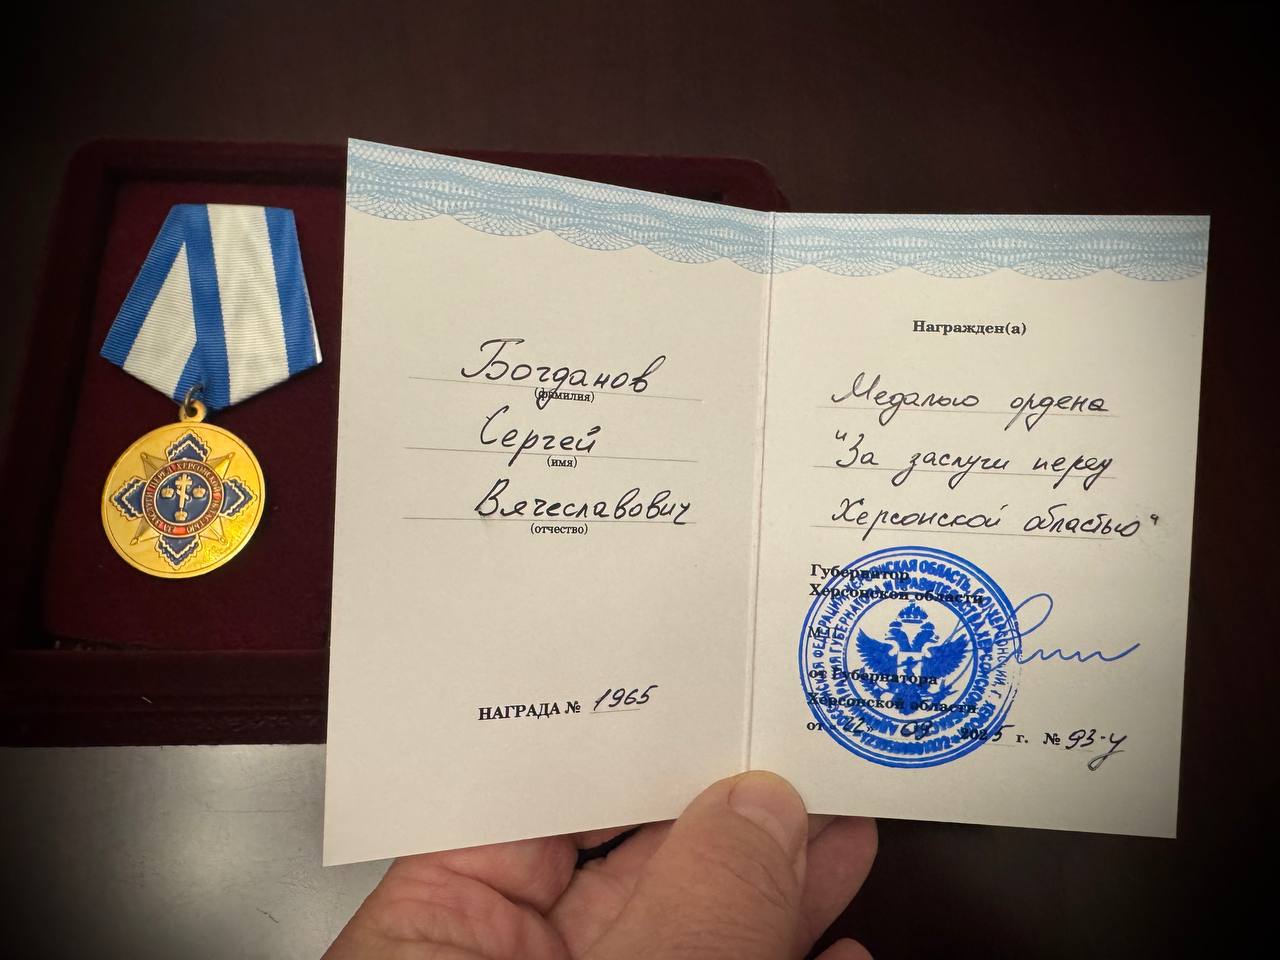 ЗА ЗАСЛУГИ ПЕРЕД ХЕРСОНСКОЙ ОБЛАСТЬЮ
Богданов
(фамилия)
Сергей
(имя)
Вячеславович
(отчество)
НАГРАДА № 1965
Награжден(а)
Медалью ордена
"За заслуги перед
Херсонской областью"
Губернатор
Херсонской области
М.П.
от Губернатора
Херсонской области
от «22» 09 2025 г. № 93-у